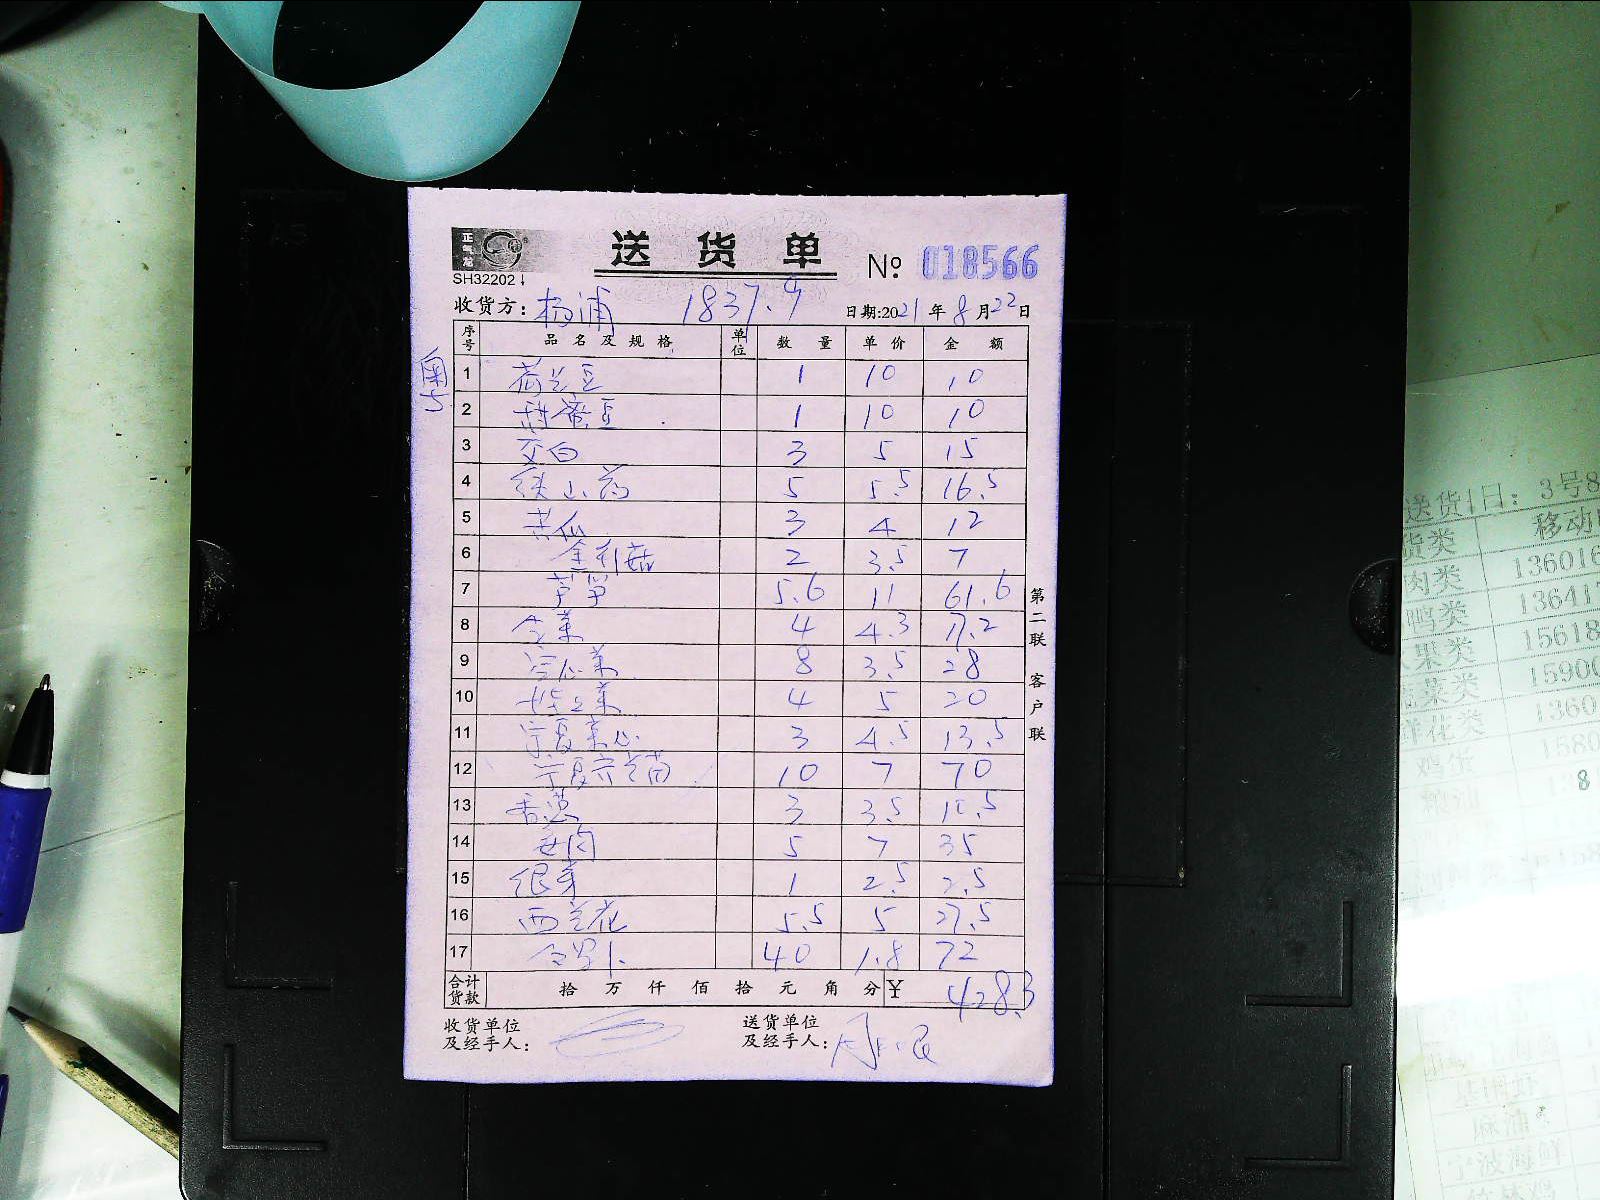 正气龙
送货单
№ 018566
SH32202
收货方：杨浦 1837.9 日期:2021年8月22日
序号 品名及规格 单位 数量 单价 金额
1 荷兰豆 1 10 10
2 科帝豆 1 10 10
3 茭白 3 5 15
4 铁山药 5 5.5 16.5
5 苦瓜 3 4 12
6 金针菇 2 3.5 7
7 芦笋 5.6 11 61.6
8 4 4.3 17.2
9 空心菜 8 3.5 28
10 4 5 20
11 宁夏菜心 3 4.5 13.5
12 宁夏芥兰苗 10 7 70
13 香葱 3 3.5 10.5
14 5 7 35
15 1 2.5 2.5
16 西兰花 5.5 5 27.5
17 40 1.8 72
合计货款 拾 万 仟 佰 拾 元 角 分 ¥ 428.3
收货单位及经手人：
送货单位及经手人：
第二联 客户联
送货1日：3号8
货类 移动
肉类 136016
鸭类 13641
果类 15618
蔬菜类 15900
鲜花类 1360
鸡蛋 1580
粮油